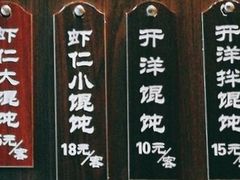 虾仁大馄饨
5元/客
虾仁小馄饨
18元/客
开洋馄饨
10元/客
开洋拌馄饨
15元/客